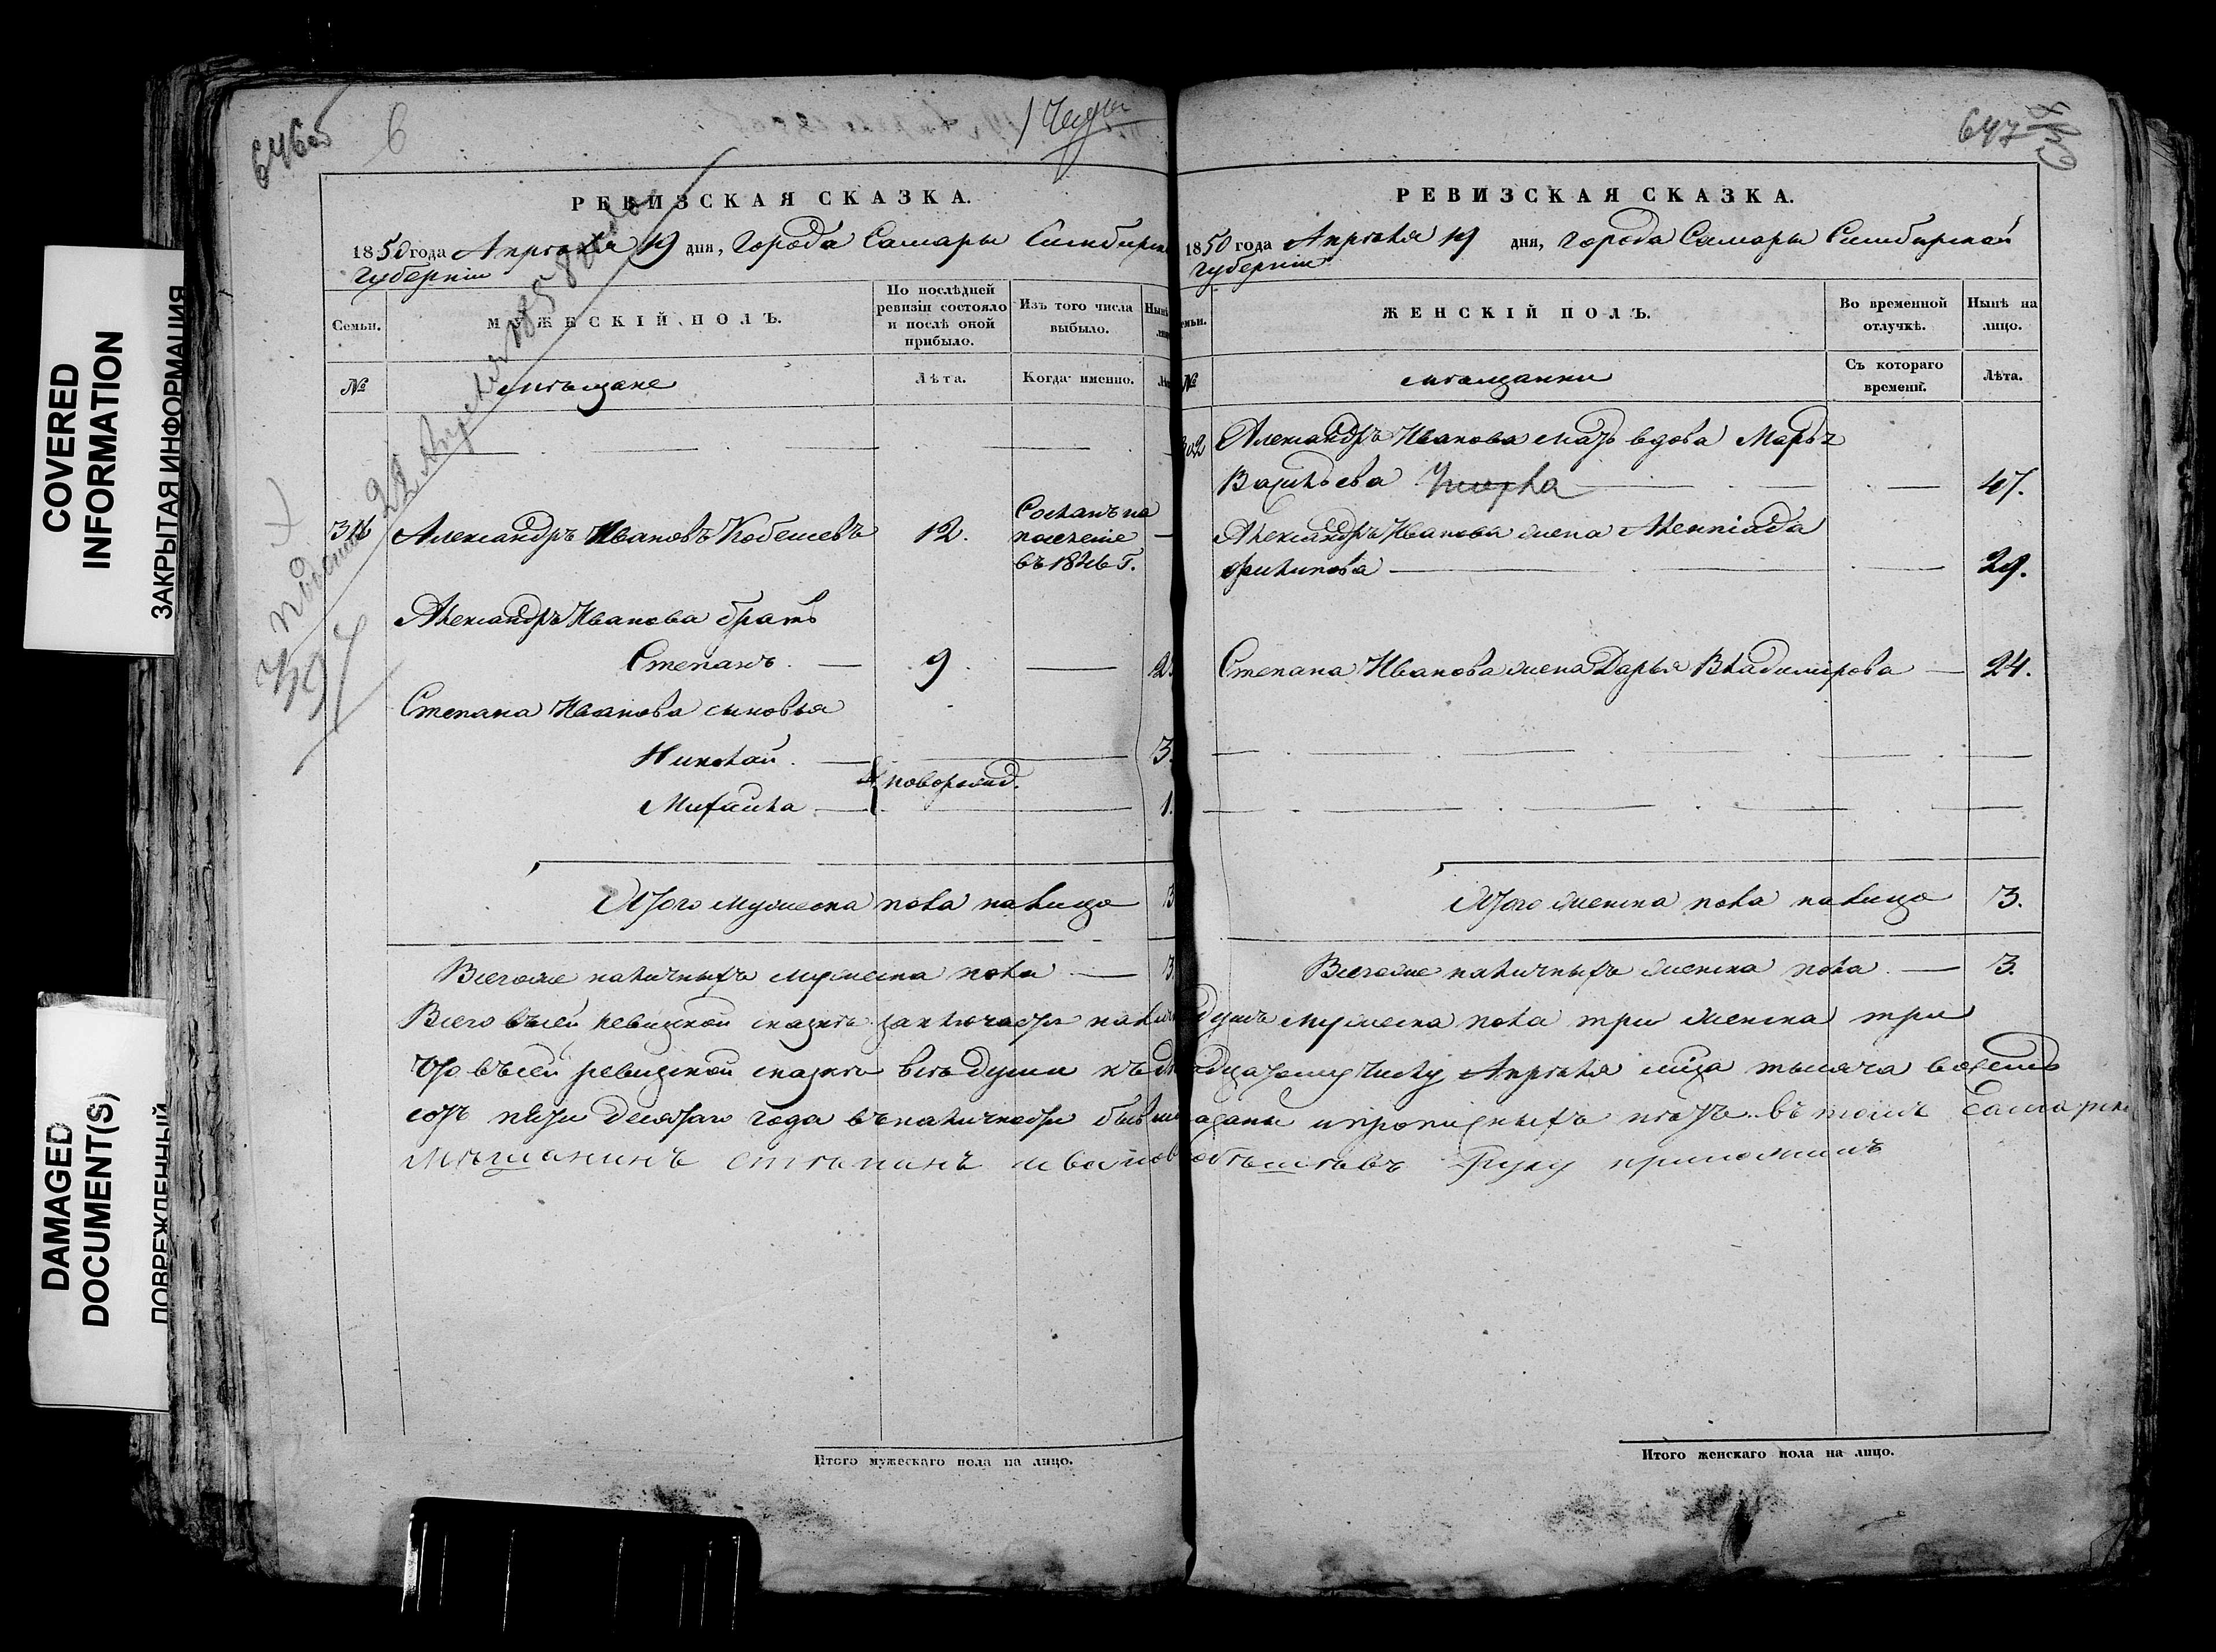 COVERED
INFORMATION
ЗАКРЫТАЯ ИНФОРМАЦИЯ
DAMAGED
DOCUMENT(S)
ПОВРЕЖДЕННЫЙ
646об
6
РЕВИЗСКАЯ СКАЗКА.
1850 года Апрѣля 19 дня, Города Самары Симбирск
Губерніи
Семьи.
МУЖЕСКІЙ ПОЛЪ.
По послѣдней
ревизіи состояло
и послѣ оной
прибыло.
Изъ того числа
выбыло.
Нынѣ
№
мѣщане
Лѣта.
Когда именно.
Александръ Ивановъ Кобешевъ
12.
Сосланъ на
поселеніе
въ 1846 г.
Александръ Иванова братъ
Степанъ. — 9. —
Степана Иванова сыновья
Николай. — 3.
новорожд.
Михайла — 1.
Итого мужеска пола налицо 3
Всегоже наличныхъ мужеска пола — 3
Итого мужескаго пола на лицо.
647
РЕВИЗСКАЯ СКАЗКА.
1850 года Апрѣля 19 дня, города Самары Симбирской
Губерніи
емьи.
ЖЕНСКІЙ ПОЛЪ.
Во временной
отлучкѣ.
Нынѣ на
лицо.
№
мѣщанки
Съ котораго
времени.
Лѣта.
Александръ Иванова мать вдова Марья
Васильева — 47.
Александръ Иванова жена
Филипова — 29.
Степана Иванова жена Дарья Владимірова — 24.
Итого женска пола налицо 3.
Всегоже наличныхъ женска пола — 3.
Всего въсей ревизской сказкѣ заключается налич душъ мужеска пола три женска три
Что въсей ревизской сказкѣ всѣ души къ Апрѣля мца тысяча восемь
сотъ пять десятаго года въналичности бывш и прописныхъ нѣтъ. въ томъ Самарск
Мѣщанинъ степанъ ивановъ руку приложилъ
Итого женскаго пола на лицо.